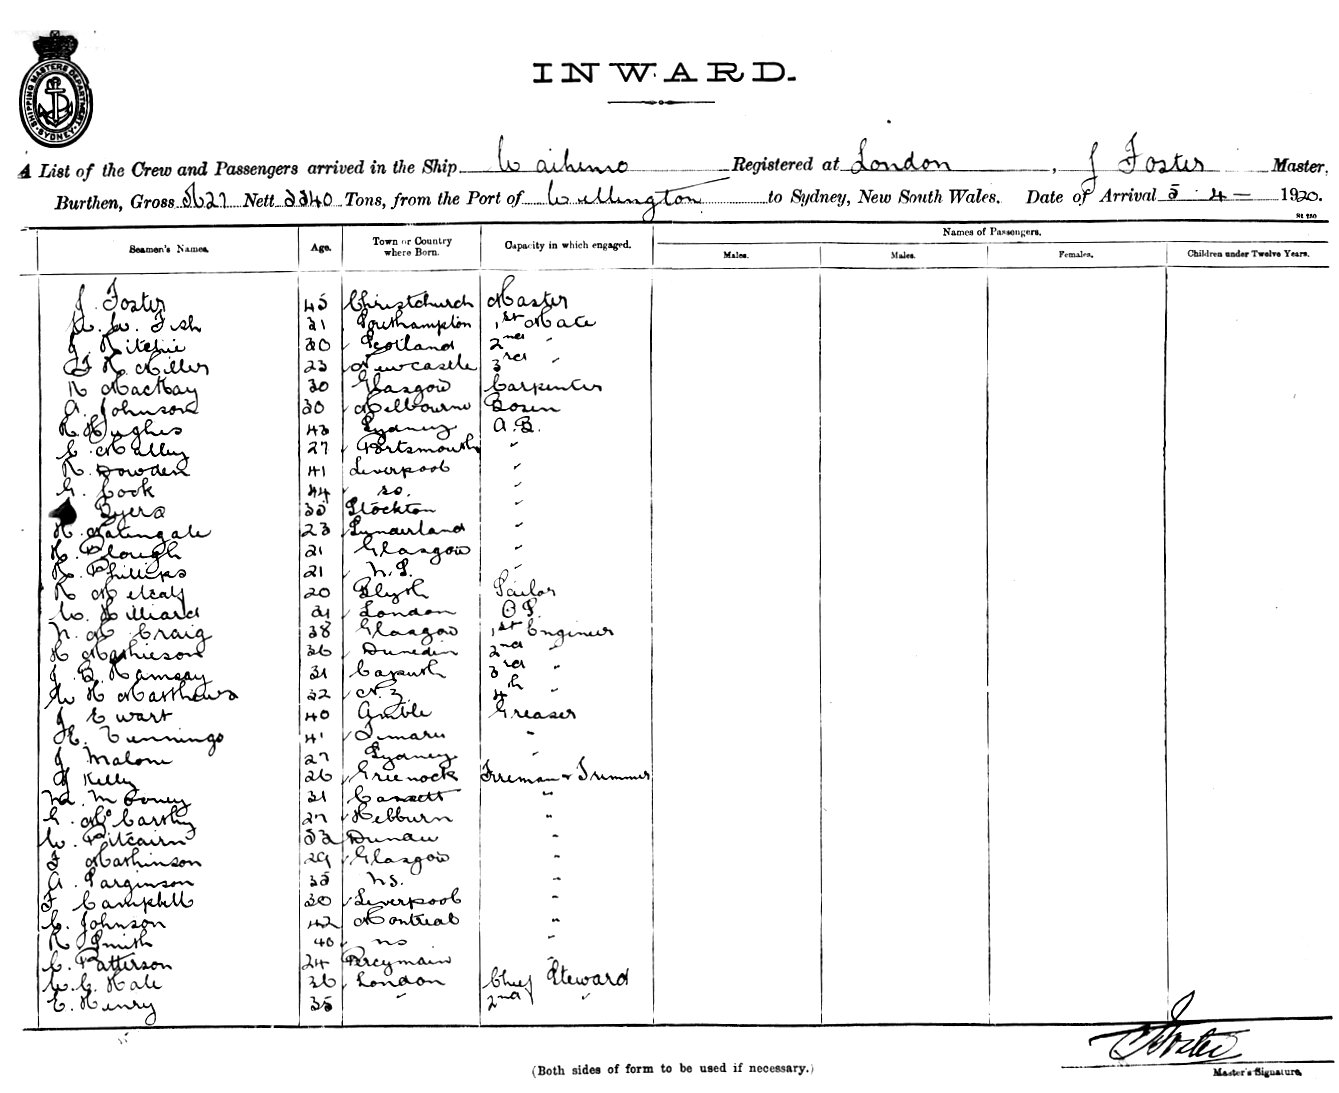 SHIPPING MASTERS DEPARTMENT SYDNEY
INWARD.
A List of the Crew and Passengers arrived in the Ship Waihemo Registered at London, J Foster Master,
Burthen, Gross Nett 3340 Tons, from the Port of Wellington to Sydney, New South Wales. Date of Arrival 5 - 4 - 1920.
St 230
Seamen's Names. Age. Town or Country where Born. Capacity in which engaged. Names of Passengers.
Males. Males. Females. Children under Twelve Years.
J. Foster 45 Christchurch Master
W. Fish 31 Southampton 1st Mate
J. Ritchie 30 Scotland 2nd "
F H Miller 23 Newcastle 3rd "
R MacKay 30 Glasgow Carpenter
A. Johnson 30 Melbourne Bosen
R. Hughes 43 Sydney A.B.
C. Malley 27 Portsmouth "
R. Dowden 41 Liverpool "
G. Cook 44 so. "
Byers 35 Stockton "
H. Natengale 23 Sunderland "
H. Plough 21 Glasgow "
R. Phillips 21 N.S. "
R Metcalf 20 Blyth Sailor
W. Hilliard 21 London O.S.
N. M. Craig 38 Glasgow 1st Engineer
H Mathieson 26 Dunedin 2nd "
J. B. Ramsay 31 Caputh 3rd "
W H Matthews 22 N.Z. 4th "
J Ewart 40 Amble Greaser
H. Cennings 41 Timaru "
J Malone 27 Sydney "
J Kelly 26 Greenock Fireman & Trimmer
31 "
G. McCarthy 27 Hebburn "
W. Pitcairn 32 Dundee "
F Mathinson 29 Glasgow "
A. Parginson 35 N.S. "
F Campbell 30 Liverpool "
C. Johnson 42 Montreal "
R Smith 40 ns "
C. Patterson 24 Percymain "
W. C. Hale 36 London Chief Steward
E. Henry 35 " 2nd "
J Foster
Master's Signature.
(Both sides of form to be used if necessary.)